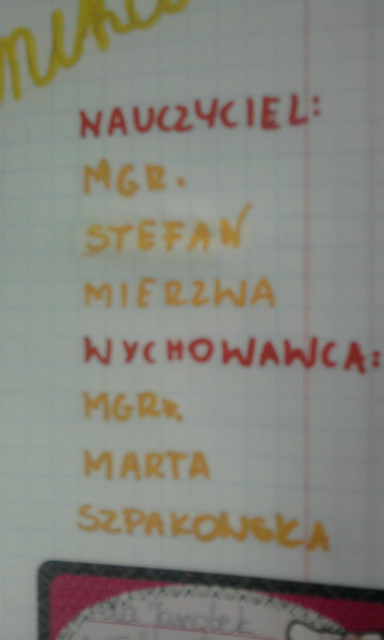 NAUCZYCIEL:
MGR.
STEFAN
MIERZWA
WYCHOWAWCA:
MGR.
MARTA
SZPAKOWSKA